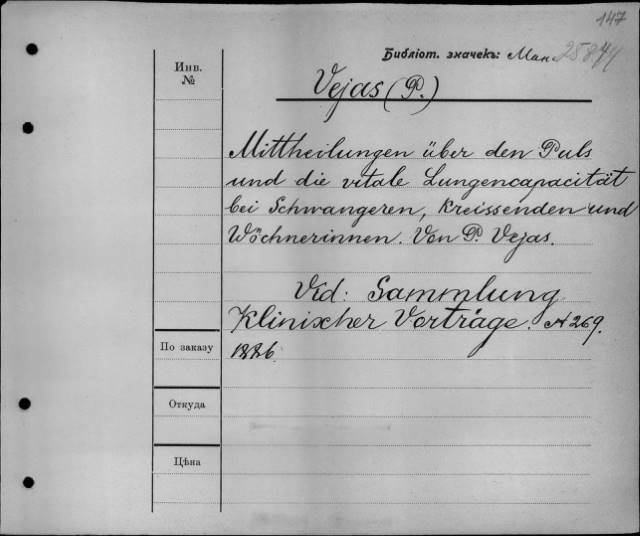 147
Библіот. значекъ: Ман. 258.74
Инв.
№
Vejas (P.)
Mittheilungen über den Puls
und die vitale Lungencapacität
bei Schwangeren, Kreissenden und
Wöchnerinnen. Von P. Vejas.
Vid: Sammlung
Klinischer Vorträge. N 269.
По заказу
1886
Откуда
Цѣна